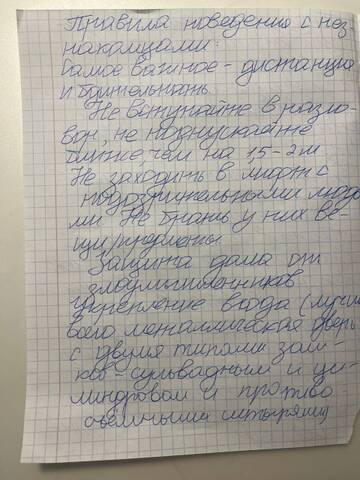 Правила поведения с нез
накомцами:
Самое важное - дистанция
и бдительность.
Не вступайте в разго
вор, не подпускайте
ближе, чем на 1,5-2м
Не заходить в лифт с
подозрительными людь
ми. Не брать у них ве-
щи/предметы
Защита дома от
злоумышленников
укрепление входа (лучше
всего металлическая дверь
с двумя типами зам-
ков - сувальдным и ци-
линдровом и противо
съёмными штырями)